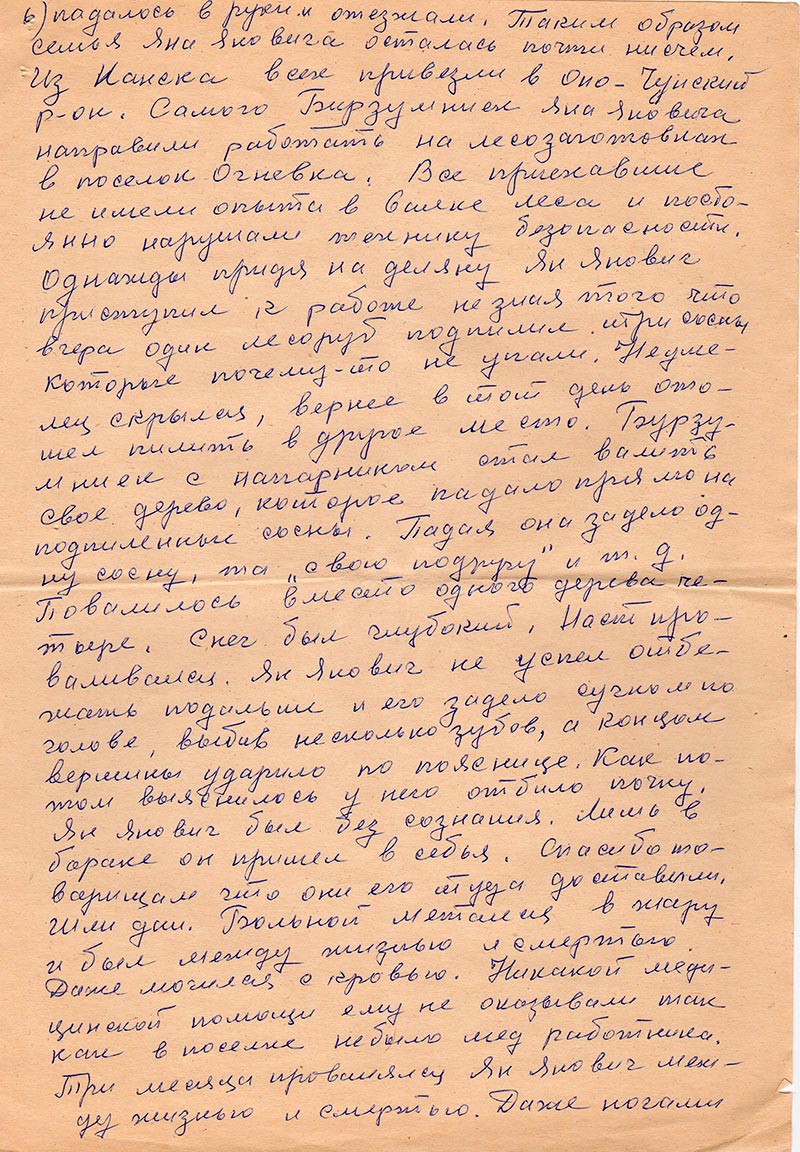 6) падалось в руки и отезжали. Таким образом
семья Яна Яновича осталась почти нисчем.
Из Канска всех привезли в Оно-Чунский
р-он. Самого Бирзумниек Яна Яновича
направили работать на лесозаготовках
в поселок Огневка. Все приехавшие
не имели опыта в валке леса и посто-
янно нарушали технику безопасности.
Однажды придя на деляну Ян Янович
приступил к работе не зная того что
вчера один лесоруб подпилил три сосны
которые почему-то не упали. Неуме-
лец скрылся, вернее в тот день ото-
шел пилить в другое место. Бурзу-
мниек с напарником стал валить
свое дерево, которое падало прямо на
подпиленные сосны. Падая она задело од-
ну сосну, та „свою подругу" и т. д.
Повалилось вместо одного дерева че-
тыре. Снег был глубокий. Наст про-
валивался. Ян Янович не успел отбе-
жать подальше и его задело сучком по
голове, выбив несколько зубов, а концом
вершины ударило по пояснице. Как по-
том выяснилось у него отбило почку.
Ян Янович был без сознания. Лишь в
бараке он пришел в себья. Спасибо то-
варищам что они его туда доставили.
Шли дни. Больной метался в жару
и был между жизнью и смертью.
Даже мочился с кровью. Никакой меди-
цинской помощи ему не оказывали так
как в поселке небыло мед работника.
Три месяца провалялся Ян Янович меж-
ду жизнью и смертью. Даже ногами